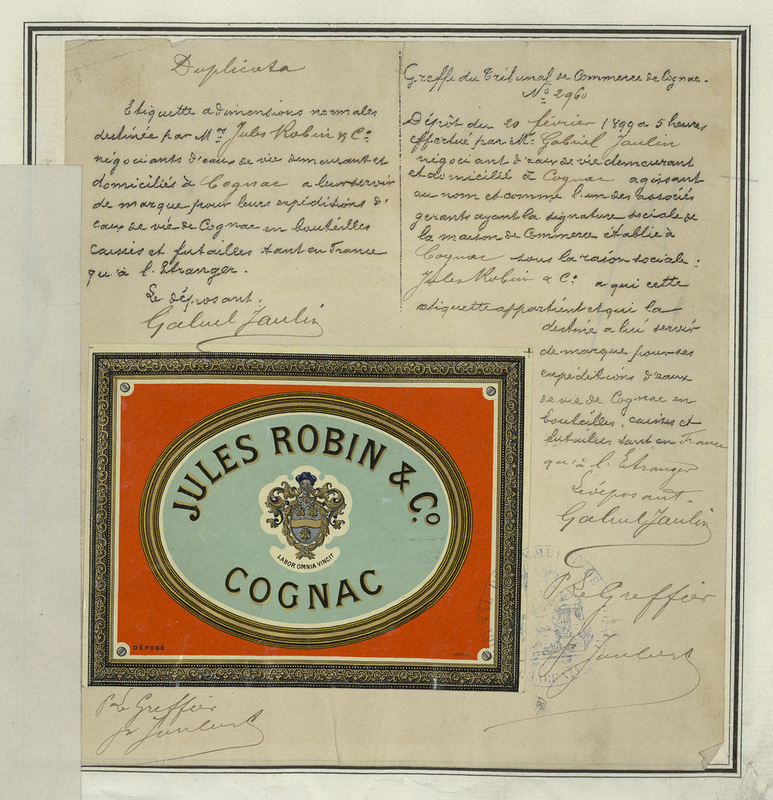 Duplicata
Etiquette a dimensions normales
destinée par Mrs Jules Robin & Co
négociants d'eaux de vie demeurant et
domiciliés à Cognac a leur servir
de marque pour leurs expéditions d'
eaux de vie de Cognac en bouteilles
caisses et futailles tant en France
qu'à l'Etranger.
Le déposant.
Gabriel Jaulin
Greffe du Tribunal de Commerce de Cognac.
No 2960
Dépôt du 20 février 1899 a 5 heures
effectué par Mr Gabriel Jaulin
négociant d'eaux de vie demeurant
et domicilié à Cognac agissant
au nom et comme l'un des associés
gerants ayant la signature sociale de
la maison de Commerce établie à
Cognac sous la raison sociale:
Jules Robin & Co a qui cette
etiquette appartient et qui la
destine a lui servir
de marque pour ses
expéditions d'eaux
de vie de Cognac en
bouteilles, caisses et
futailles tant en France
qu'à l'Etranger
Le déposant.
Gabriel Jaulin
JULES ROBIN & Co.
LABOR OMNIA VINCIT
COGNAC
DÉPOSÉ
Pr Le Greffier
Jaulert
Pr Le Greffier
Jaulert